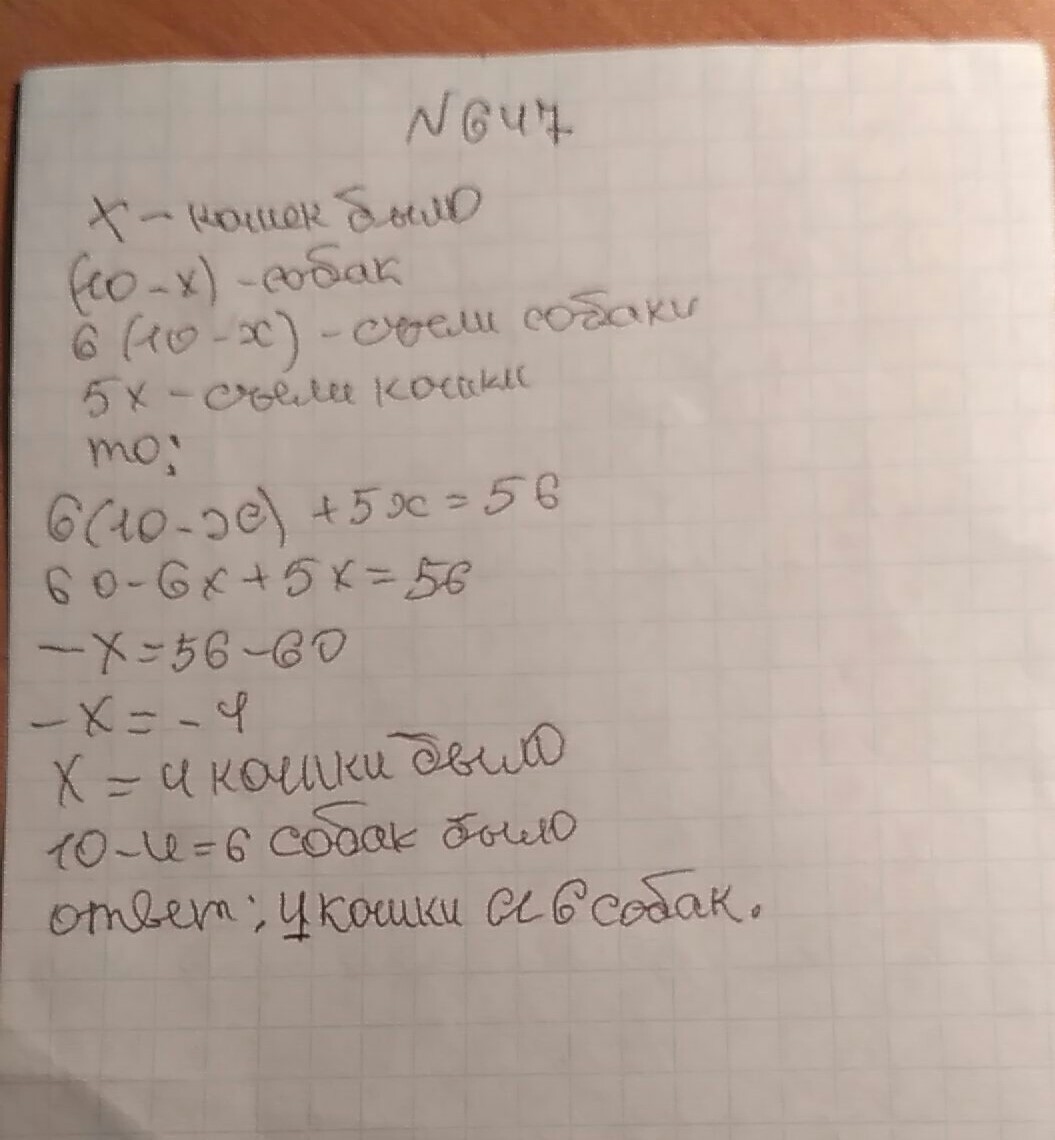 N 647
x - кошек было
(10-x) - собак
6 (10-x) - съели собаки
5x - съели кошки
то:
6(10-x) + 5x = 56
60-6x+5x=56
-x=56-60
-x=-4
x=4 кошки было
10-4=6 собак было
ответ: 4 кошки и 6 собак.